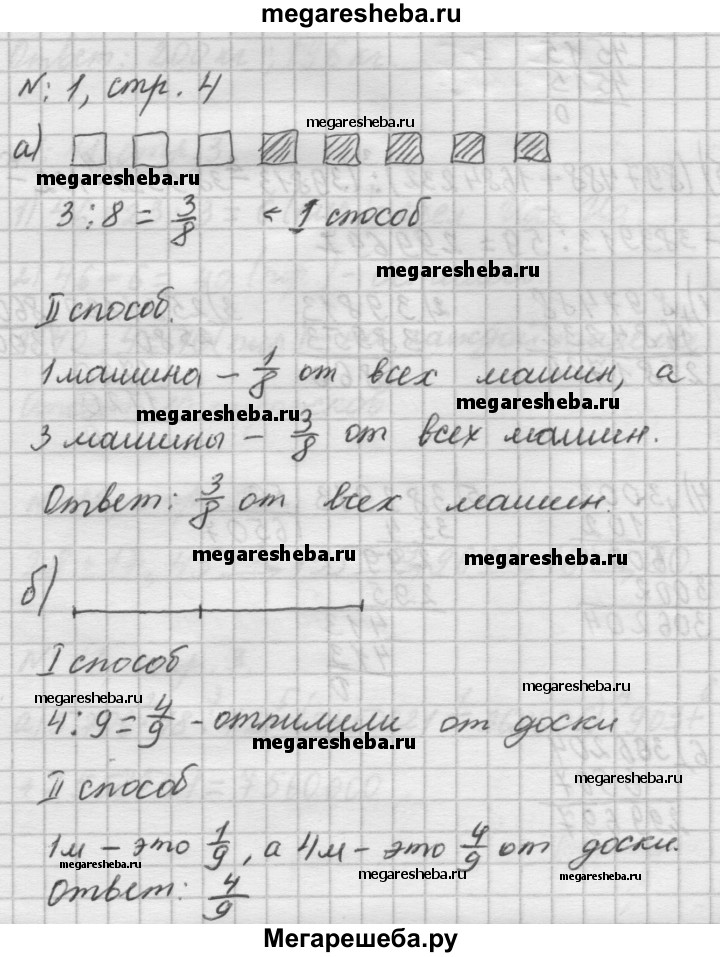 megaresheba.ru
№: 1, стр. 4
megaresheba.ru
а)
megaresheba.ru
3 : 8 = 3/8 < 1 способ
megaresheba.ru
II способ.
1 машина – 1/8 от всех машин, а
megaresheba.ru megaresheba.ru
3 машины – 3/8 от всех машин.
Ответ: 3/8 от всех машин.
megaresheba.ru megaresheba.ru
б)
I способ
megaresheba.ru megaresheba.ru
4 : 9 = 4/9 - отпилили от доски
megaresheba.ru
II способ
megaresheba.ru
1м – это 1/9, а 4м – это 4/9 от доски.
megaresheba.ru megaresheba.ru megaresheba.ru
Ответ: 4/9
Мегарешеба.ру